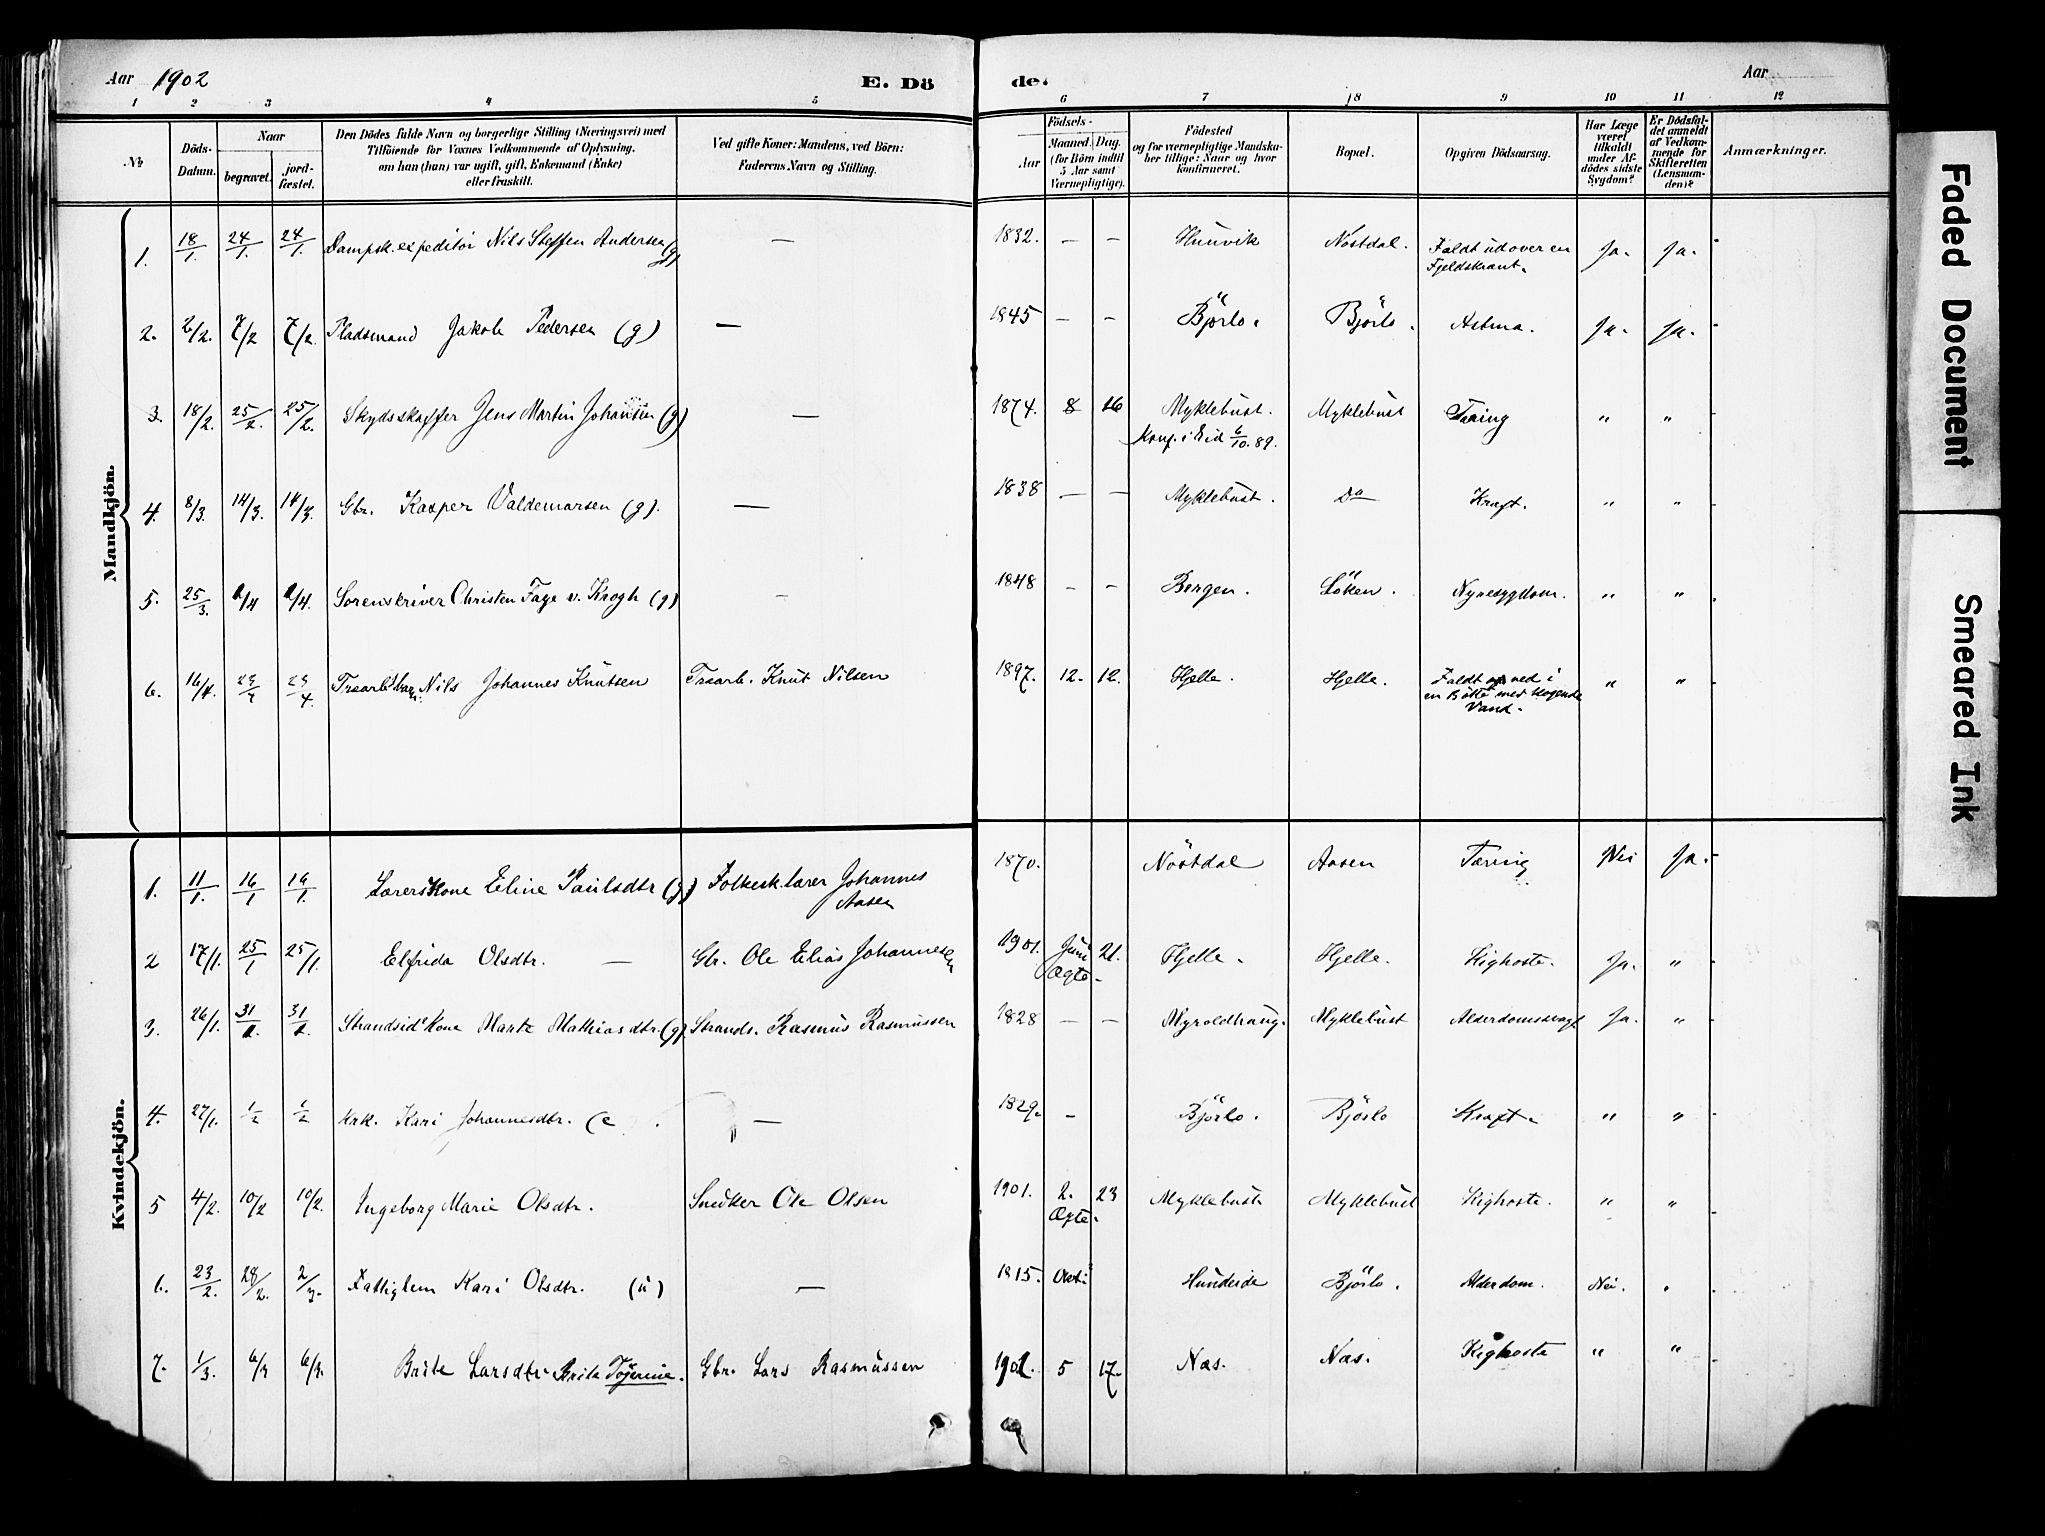 Aar 1902 E. Dö de. Aar
1 2 3 4 5 6 7 8 9 10 11 12
№
Döds-
Datum.
Naar
begravet.
jord-
fæstet.
Den Dödes fulde Navn og borgerlige Stilling (Næringsvei) med
Tilföiende for Voxnes Vedkommende af Oplysning,
om han (hun) var ugift, gift, Enkemand (Enke)
eller fraskilt.
Ved gifte Koner: Mandens, ved Börn:
Faderens Navn og Stilling.
Födsels-
Aar
Maaned. Dag.
(for Börn indtil
5 Aar samt
Værnepligtige).
Födested
og for værnepligtige Mandska-
ber tillige: Naar og hvor
konfirmeret.
Bopæl.
Opgiven Dödsaarsag.
Har Læge
været
tilkaldt
under Af-
dödes sidste
Sygdom?
Er Dödsfal-
det anmeldt
af Vedkom-
mende for
Skifteretten
(Lensman-
den)?
Anmærkninger.
Mandkjön.
1. 18/1. 24/1. 24/1. Dampsk. expeditör Nils Steffen Andersen (g) — 1832. — — Nöstdal. Faldt ud over en Ja. Ja.
Fjeldskrænt.
2. 2/2. 7/2 7/2. Pladsmand Jakob Pedersen (g) — 1845 — — Björlo. Björlo. Astma. Ja. Ja.
3. 18/2. 25/2. 25/2. Skydsskaffer Jens Martin Johansen (g) — 1874. 8 16 Myklebust. Myklebust Tæring " "
Konf. i Eid 6/10. 89.
4. 8/3. 14/3. 14/3. Gbr. Kasper Valdemarsen (g). — 1838 — — Myklebust. Do Kræft. " "
5. 25/3. /4 /4. Sorenskriver Christen Faye v. Krogh (g) — 1848 — — Bergen. Löken. Nyresygdom. " "
6. 16/4. 23/4 23/4. Træarb. barn Nils Johannes Knutsen Træarb. Knut Nilsen 1897. 12. 12. Hjelle. Hjelle. Faldt ned i " "
en Bötte med kogende
Vand.
Kvindekjön.
1. 11/1. 16/1. 19/1. Lærers Kone Eline Paulsdtr (g) Folkesk. lærer Johannes 1870. Nöstdal Aasen Tæring Nei Ja.
Aasen
2 17/1. 25/1 25/1. Elfrida Olsdtr. — Gbr. Ole Elias Johannesen 1901. Juni 21. Hjelle. Hjelle. Kighoste. Ja. "
Ægte.
3. 26/1. 31/1. 31/1. Strandsid. Kone Marte Mathiasdtr (g) Strands. Rasmus Rasmussen 1828 — — Myroldhaug. Myklebust Alderdomssvagh Ja. "
4. 27/1. 1/2 1/2 Kari Johannesdtr. (e — 1829. — Björlo. Björlo Kræft. " "
5 4/2. 10/2 10/2. Ingeborg Marie Olsdtr. Snedker Ole Olsen 1901. 2. 23 Myklebust Myklebust Kighoste. " "
Ægte.
6. 23/2. 28/2. 2/3. Fattiglem Kari Olsdtr. (u) — 1815. Hundeide Björlo. Alderdom. Nei. "
7. 1/3. 6/3 6/3. Brite Larsdtr Brite Töjerine. Gbr. Lars Rasmussen 1901. 5 17. Næs. Næs. Kighoste " "
Faded Document
Smeared Ink